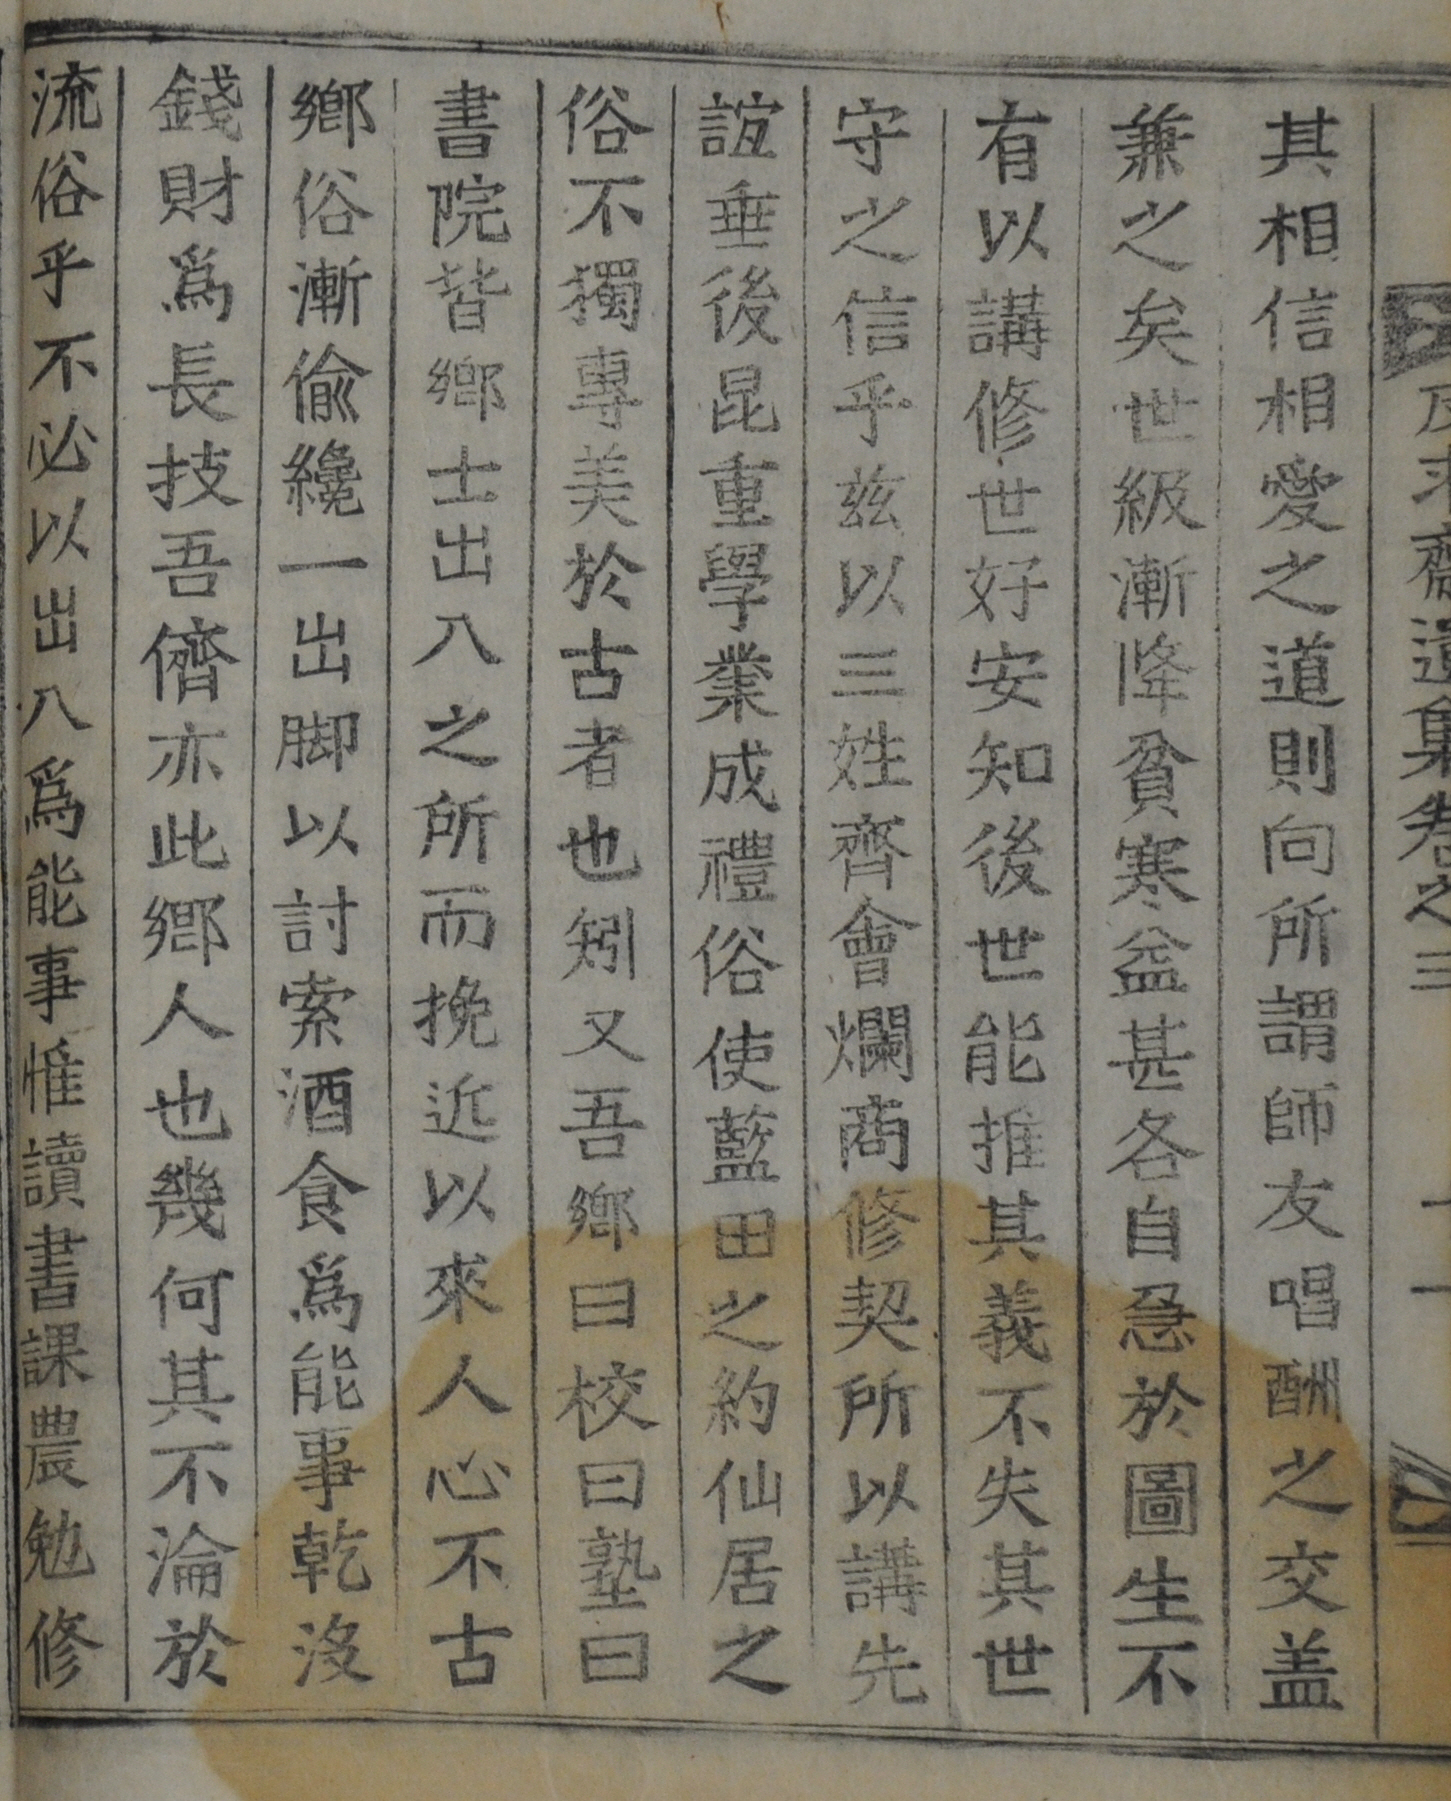 求齋遺集卷之三
其相信相愛之道則向所謂師友唱酬之交盖
兼之矣世級漸降貧寒益甚各自急於圖生不
有以講修世好安知後世能推其義不失其世
守之信乎玆以三姓齊會爛商修契所以講先
誼垂後昆重學業成禮俗使藍田之約仙居之
俗不獨專美於古者也矧又吾鄉曰校曰塾曰
書院皆鄉士出入之所而挽近以來人心不古
鄉俗漸偸纔一出脚以討索酒食爲能事乾沒
錢財爲長技吾儕亦此鄉人也幾何其不淪於
流俗乎不必以出入爲能事惟讀書課農勉修